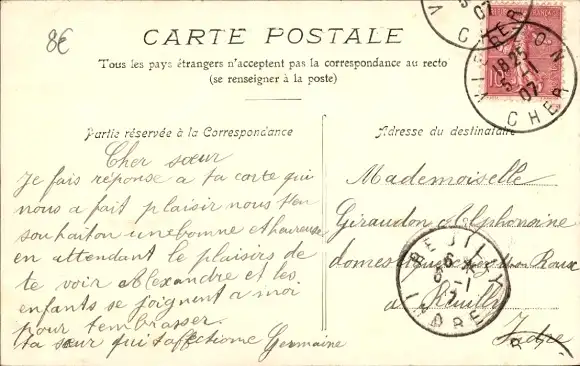 8€
CARTE POSTALE
Tous les pays étrangers n'acceptent pas la correspondance au recto
(se renseigner à la poste)
Partie réservée à la Correspondance
Adresse du destinataire
Cher sœur
Je fais réponse a ta carte qui
nous a fait plaisir nous t'en
souhaiton une bonne et heureuse
en attendant le plaisirs de
te voir Alexandre et les
enfants se joignent a moi
pour tembrasser.
ta sœur qui taffectionne Germaine
Mademoiselle
Giraudon Alphonsine
domestique chez Roux
a Reuilly
Indre
VIERZON
CHER
18 25
5 -1
07
REUILLY
INDRE
6 -1